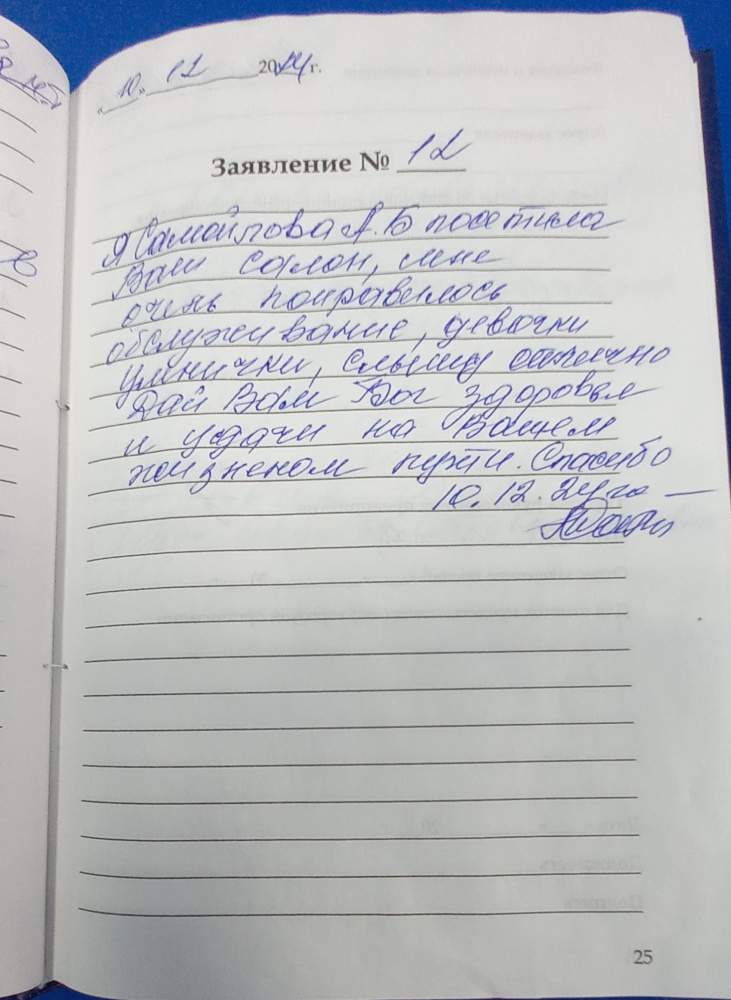 «10» 12 2024 г.
Заявление № 12
Я Самойлова А.Б посетила
Ваш салон, мне
очень понравилось
обслуживание, девочки
умнички, слышу отлично
Дай Вам Бог здоровья
и удачи на Вашем
жизненом пути. Спасибо
10.12.24го —
25